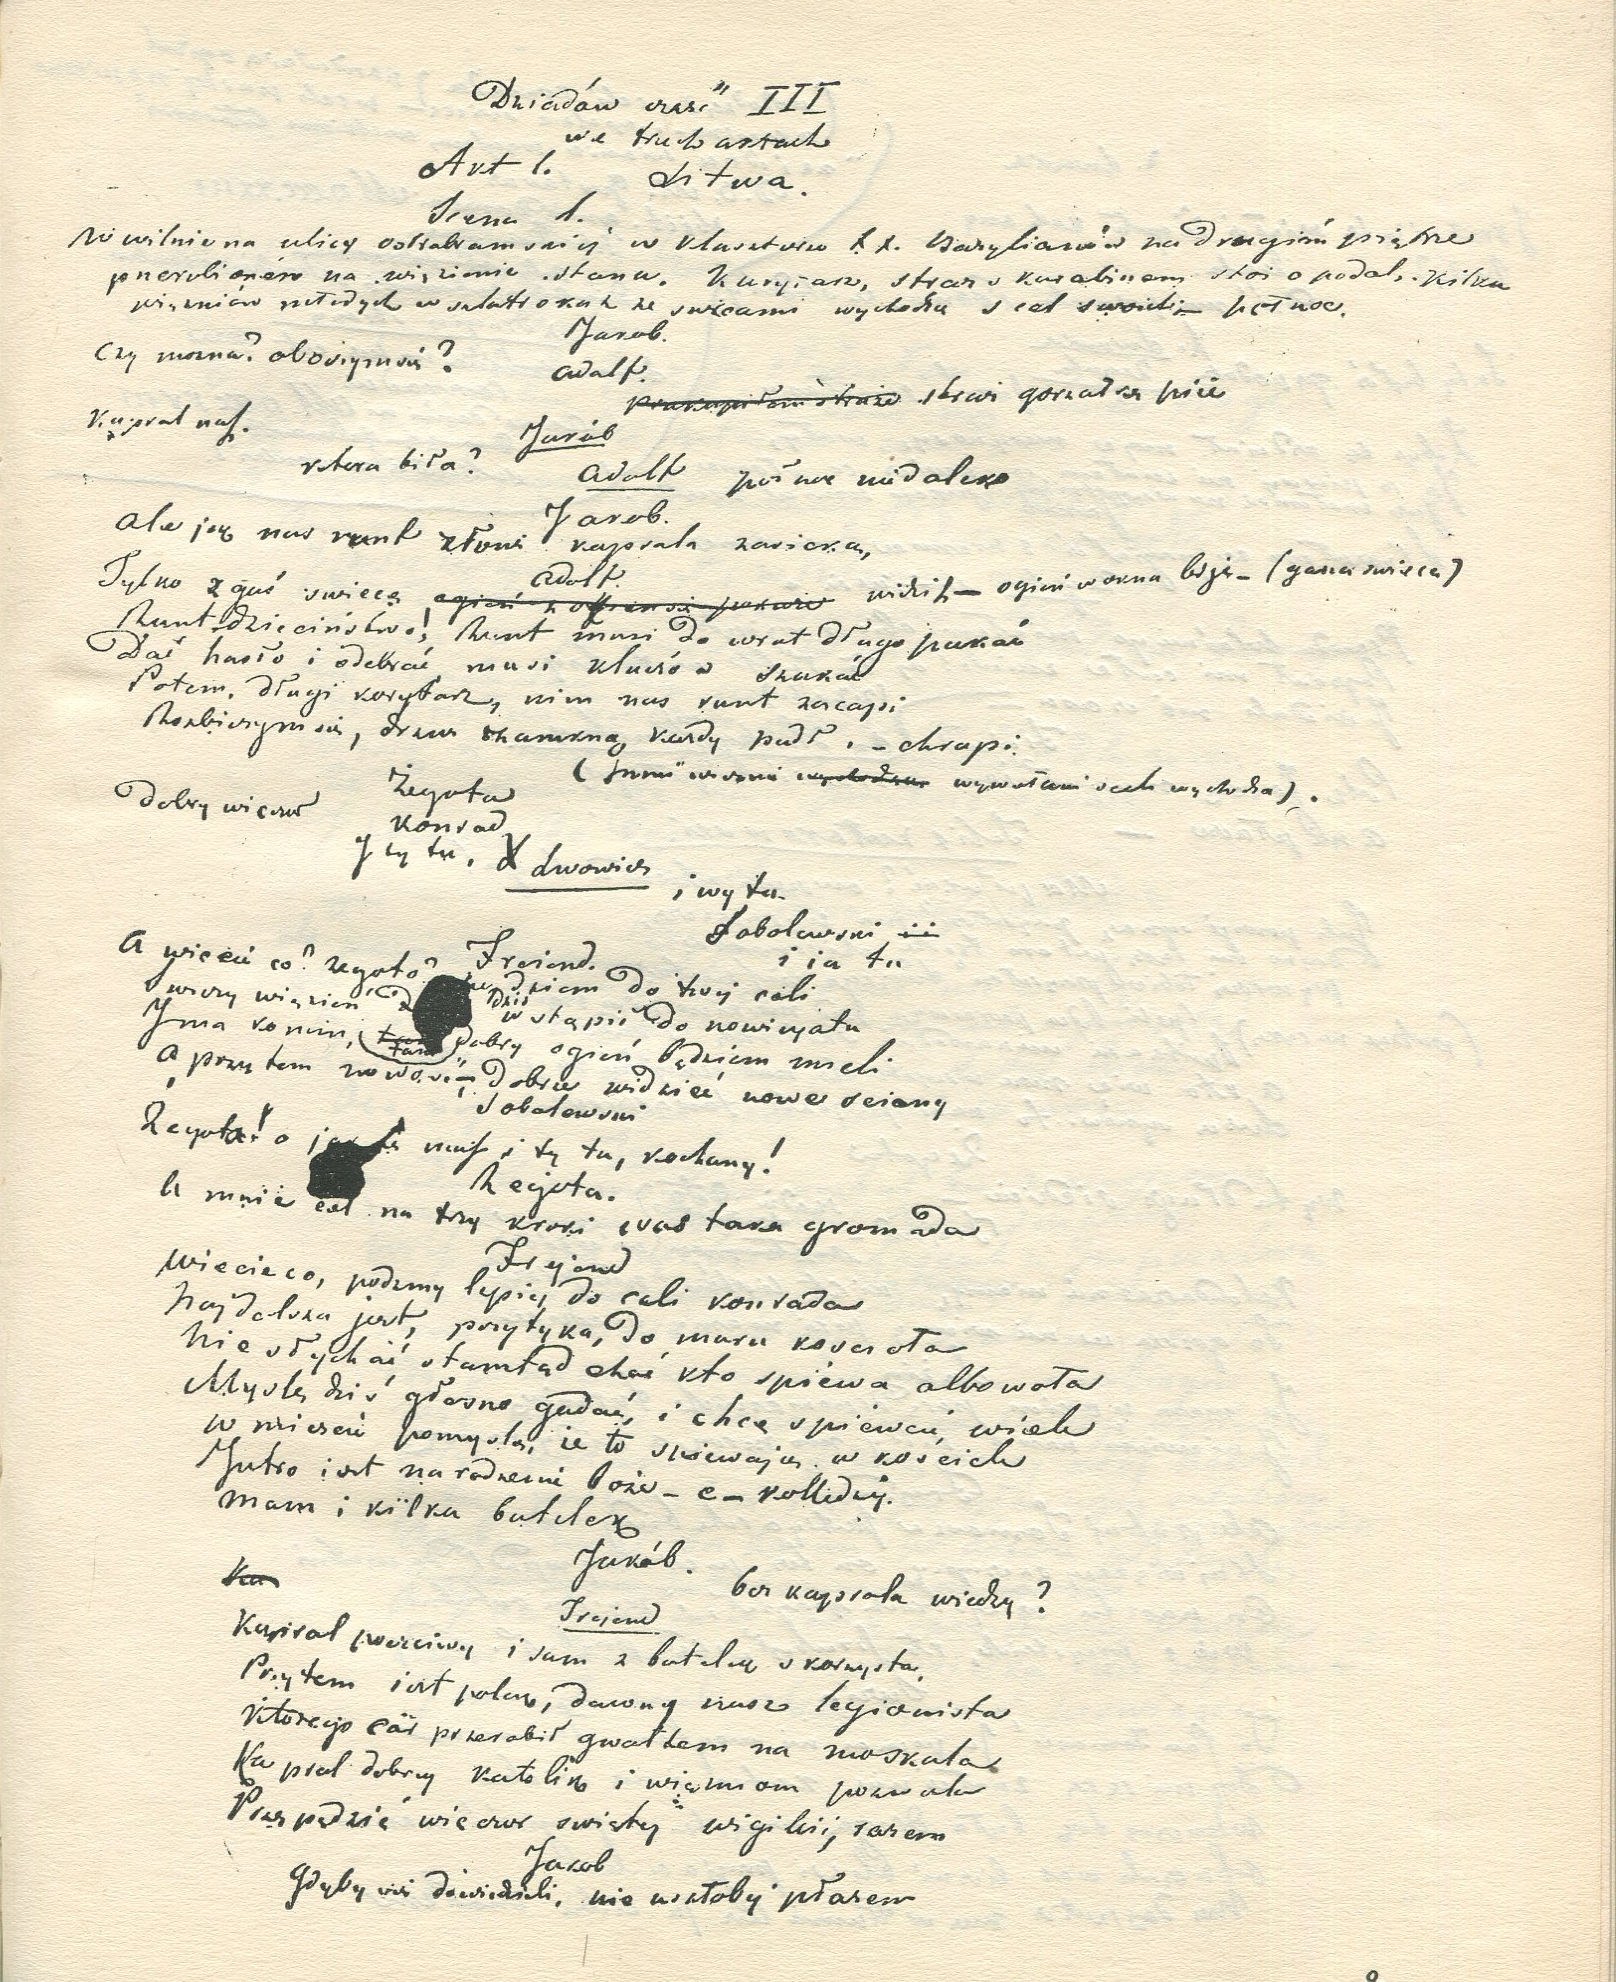 Dziadów część III
we trzech aktach
Akt 1. Litwa.
Scena 1.
W wilnie na ulicy ostrobramskiej w klasztorze X X. Bazylianów na drugiém piętrze
przerobioném na więzienie stanu. Kurytarz, straż s karabinem stoi opodal. kilku
więźniów młodych w szlafrokach ze swiecami wychodzą s cel swoich – północ.
Jakob.
Czy można? obaczymsię?
Adolf.
przekupiłem straże straż gorzałkę pije
Kapral nasz.
Jakób
ktora biła?
Adolf
połnoc niedaleko
Jakob.
Ale jeżę nas runt złowi kaprala zarieka,
Adolf.
Tylko zgaś swiecę, widzisz – ogień w okna bije – (gasi swiecę)
Runt dzieciństwo! Runt musi do wrot długo pukać
Dać hasło i odebrać, musi kluczów szukać
Potem, długi korytarz, nim nas runt zacapi
Rozbieżym się, drzwi zamkną, każdy padł, – chrapi.
(Inni więźnie wychodzą wywołani s cel wychodzą).
Żegota
Dobry wieczor
Konrad
I ty tu.
X Lwowicz
i wy tu.
Sobolewski
i ia tu
Frejend.
A wiecie co? zegoto? idziem do twej celi
swieży więzień dziś wstąpił do nowicyatu
I ma komin, tam dobry ogień będziem mieli
A przytem nowość, – Dobrze widzieć nowe sciany
Sobolewski
Zegota! o jak się masz i ty tu, kochany!
Zegota.
U mnie cel na trzy kroki was taka gromada
Frejend
Wiecie co, podzmy lepiej do celi konrada
Najdalsza jest, przytyka, do muru koscioła
Nie słychać stamtąd choć kto spiéwa albo woła
Myslę dziś głosno gadać, i chcę spiéwać wiele
W miescie pomyslą, ie to spiewają w kosciele
Jutro iest narodzenie Boże – e – kolledzy.
Mam i kilka butelek
Jakób.
bez kaprala wiedzy?
Ka
Frejend
Kapral poczciwy i sam z butelek skorzysta,
Przytem iest polak, dawny nasz legionista
Którego car przerobił gwałtem na moskala
Kapral dobry katolik i więzniom pozwala
Przepędzić wieczor swiętej wigilii, razem
Jakob
Gdyby się dowiedzieli, nie uszłoby płazem